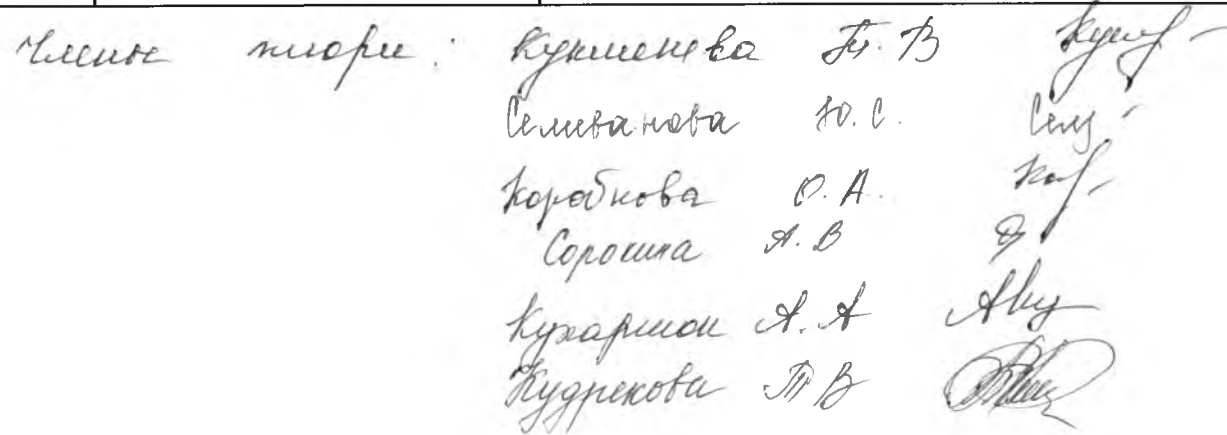 Члены жюри: Кукшенева Т. В
Селиванова Ю. С.
Коробкова О. А.
Сорокина А. В
А. А
Кудрекова Т В